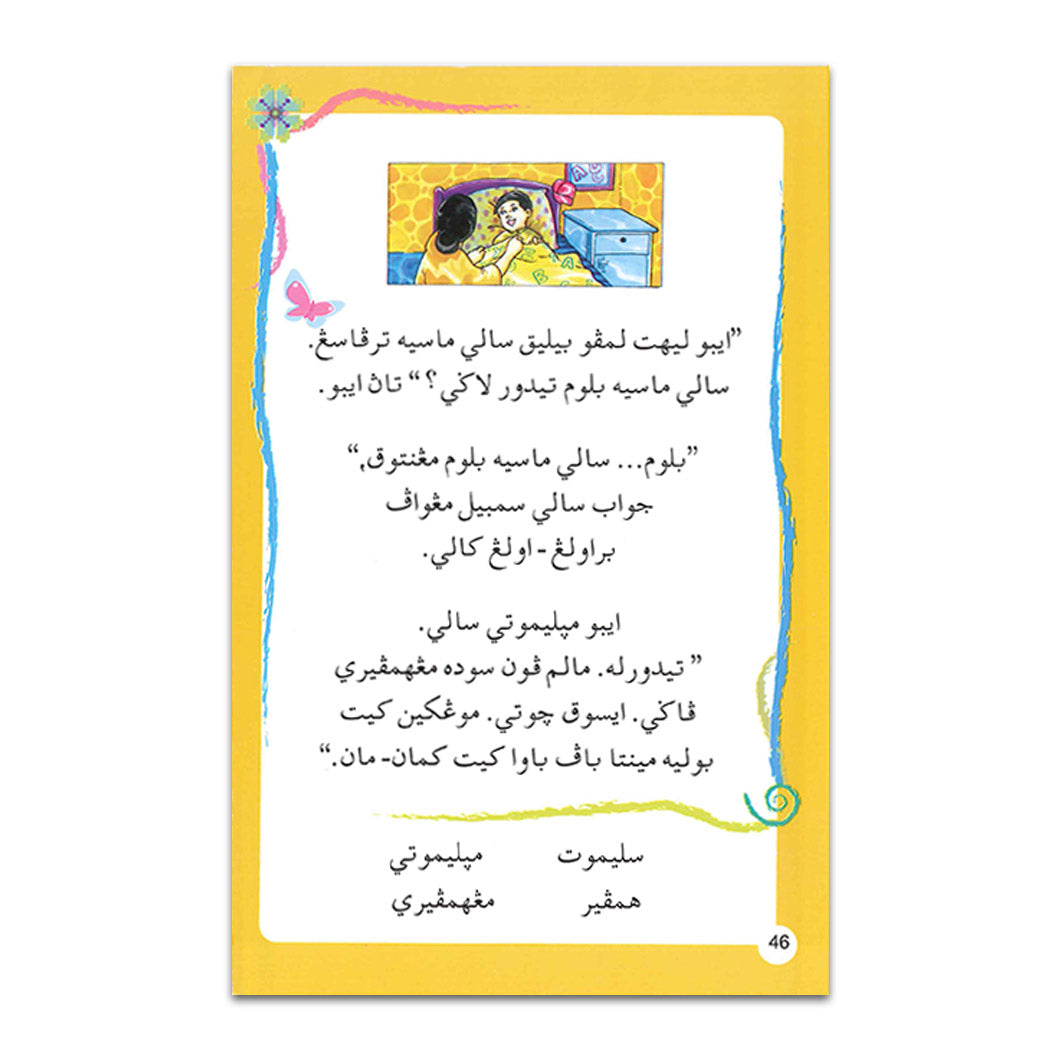 ”ايبو ليهت لمڤو بيليق سالي ماسيه ترڤاسڠ.
سالي ماسيه بلوم تيدور لاݢي؟“ تاڽ ايبو.
”بلوم... سالي ماسيه بلوم مڠنتوق,“
جواب سالي سمبيل مڠواڤ
براولڠ - اولڠ كالي.
ايبو مڽليموتي سالي.
” تيدورله. مالم ڤون سوده مڠهمڤيري
ڤاݢي. ايسوق چوتي. موڠكين كيت
بوليه مينتا باڤ باوا كيت كمان- مان.“
سليموت مڽليموتي
همڤير مڠهمڤيري
46